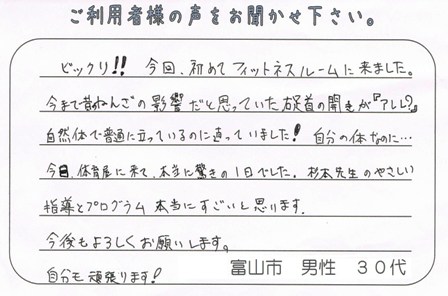 ご利用者様の声をお聞かせ下さい。
ビックリ!! 今回、初めてフィットネスルームに来ました。
今まで昔のねんざの影響だと思っていた右足首の開きが『アレレ?』
自然体で普通に立っているのに違っていました! 自分の体なのに…
今日、体育屋に来て、本当に驚きの1日でした。杉本先生のやさしい
指導とプログラム 本当にすごいと思ります。
今後もよろしくお願いします。
自分も頑張ります!
富山市 男性 30代